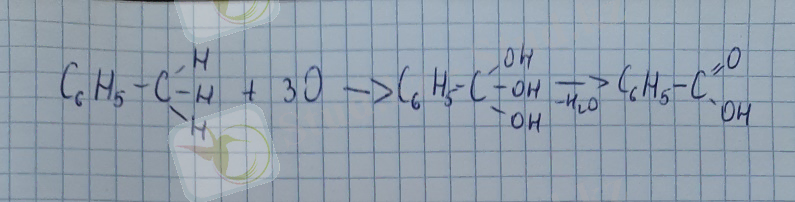 C₆H₅-C-H H H + 3O → C₆H₅-C-OH OH OH → -H₂O C₆H₅-C=O OH